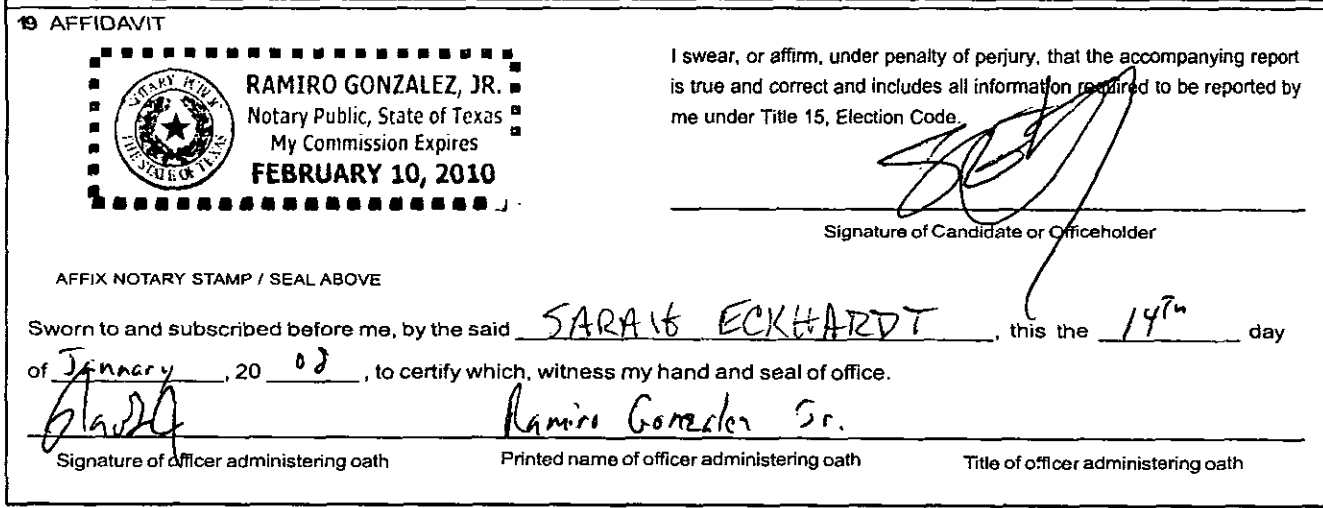 19 AFFIDAVIT
NOTARY PUBLIC
THE STATE OF TEXAS
RAMIRO GONZALEZ, JR.
Notary Public, State of Texas
My Commission Expires
FEBRUARY 10, 2010
I swear, or affirm, under penalty of perjury, that the accompanying report
is true and correct and includes all information required to be reported by
me under Title 15, Election Code.
Signature of Candidate or Officeholder
AFFIX NOTARY STAMP / SEAL ABOVE
Sworn to and subscribed before me, by the said SARAH ECKHARDT, this the 14th day
of January, 20 08, to certify which, witness my hand and seal of office.
Ramiro Gonzalez Jr.
Signature of officer administering oath Printed name of officer administering oath Title of officer administering oath